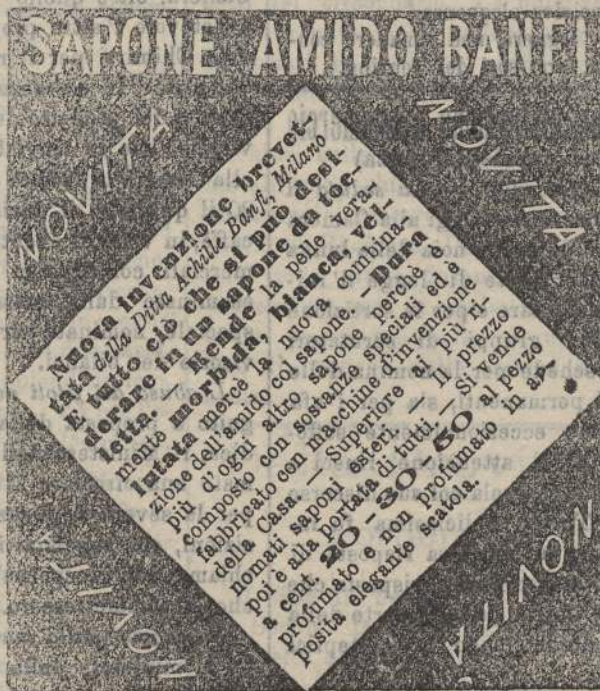 SAPONE AMIDO BANFI
NOVITA
NOVITA
Nuova invenzione brevet-
tata della Ditta Achille Banfi, Milano
È tutto ciò che si può desi-
derare in un sapone da toe-
letta. — Rende la pelle vera-
mente morbida, bianca, vel-
lutata mercè la nuova combina-
zione dell'amido col sapone. — Dura
più d'ogni altro sapone perchè
composto con sostanze speciali ed è
fabbricato con macchine d'invenzione
della Casa. — Superiore ai più ri-
nomati saponi esteri. — Il prezzo
poi è alla portata di tutti. — Si vende
a cent. 20-30-50 al pezzo
profumato e non profumato in ap-
posita elegante scatola.
NOVITA
NOVITA